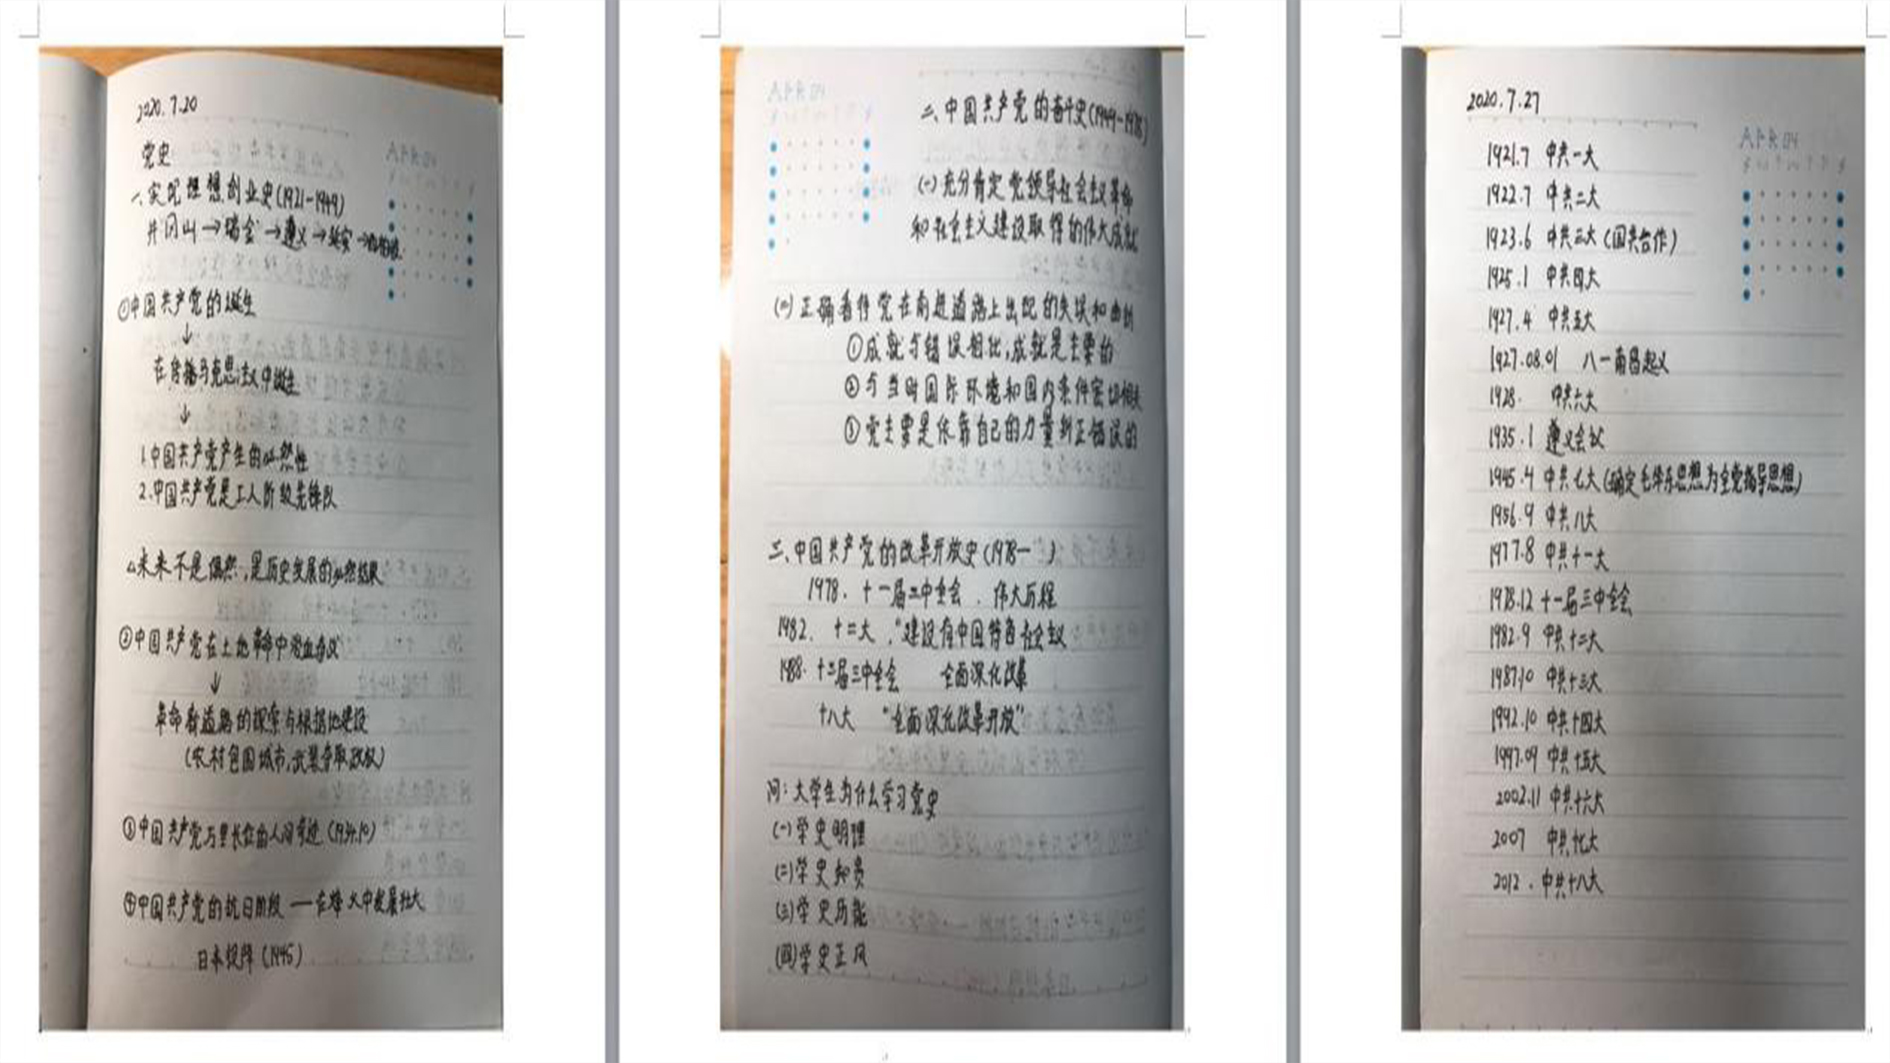 2020.7.20
党史
一、实现理想创业史(1921-1949)
井冈山→瑞金→遵义→延安→西柏坡
①中国共产党的诞生
↓
在传播马克思主义中诞生
↓
1.中国共产党产生的必然性
2.中国共产党是工人阶级先锋队
△未来不是偶然,是历史发展的必然结果
②中国共产党在土地革命中浴血奋战
↓
革命新道路的探索与根据地建设
(农村包围城市,武装夺取政权)
③中国共产党万里长征的人间奇迹(1934.10)
④中国共产党的抗日阶段——在烽火中发展壮大
日本投降(1945)
二、中国共产党的奋斗史(1949-1978)
(一)充分肯定党领导社会主义革命
和社会主义建设取得的伟大成就
(二)正确看待党在前进道路上出现的失误和曲折
①成就与错误相比,成就是主要的
②与当时国际环境和国内条件密切相关
③党主要是依靠自己的力量纠正错误的
三、中国共产党的改革开放史(1978— )
1978. 十一届三中全会 . 伟大历程
1982. 十二大 ,"建设有中国特色社会主义
1988. 十三届三中全会 全面深化改革
十八大 "全面深化改革开放"
问:大学生为什么学习党史
(一)学史明理
(二)学史知责
(三)学史历能
(四)学史正风
2020.7.27
1921.7 中共一大
1922.7 中共二大
1923.6 中共三大(国共合作)
1925.1 中共四大
1927.4 中共五大
1927.08.01 八一南昌起义
1928. 中共六大
1935.1 遵义会议
1945.4 中共七大(确定毛泽东思想为全党指导思想)
1956.9 中共八大
1977.8 中共十一大
1978.12 十一届三中全会
1982.9 中共十二大
1987.10 中共十三大
1992.10 中共十四大
1997.09 中共十五大
2002.11 中共十六大
2007 中共十七大
2012 . 中共十八大